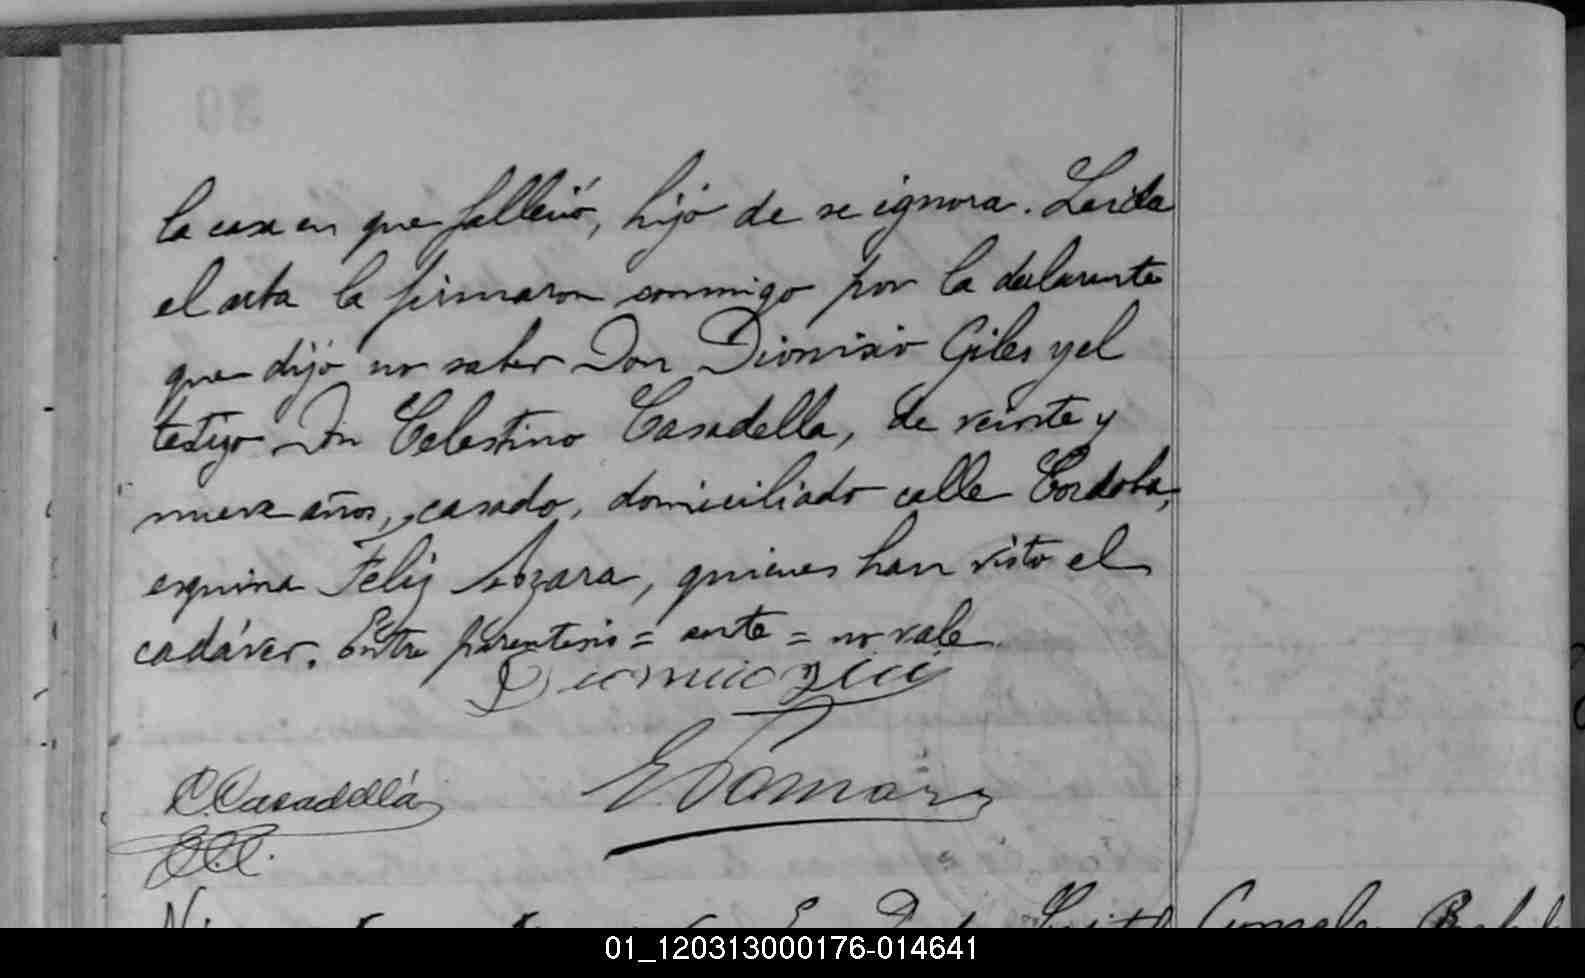 la casa en que falleció, hijo de se ignora. Leida
el acta la firmaron conmigo por la declarante
que dijo no saber Don Dionisio Giles y el
testigo Don Celestino Casadella, de veinte y
nueve años, casado, domiciliado calle Cordoba,
esquina Feliz Azara, quienes han visto el
cadáver. Entre parentesis = ente = no vale
C. Casadellá
01_120313000176-014641